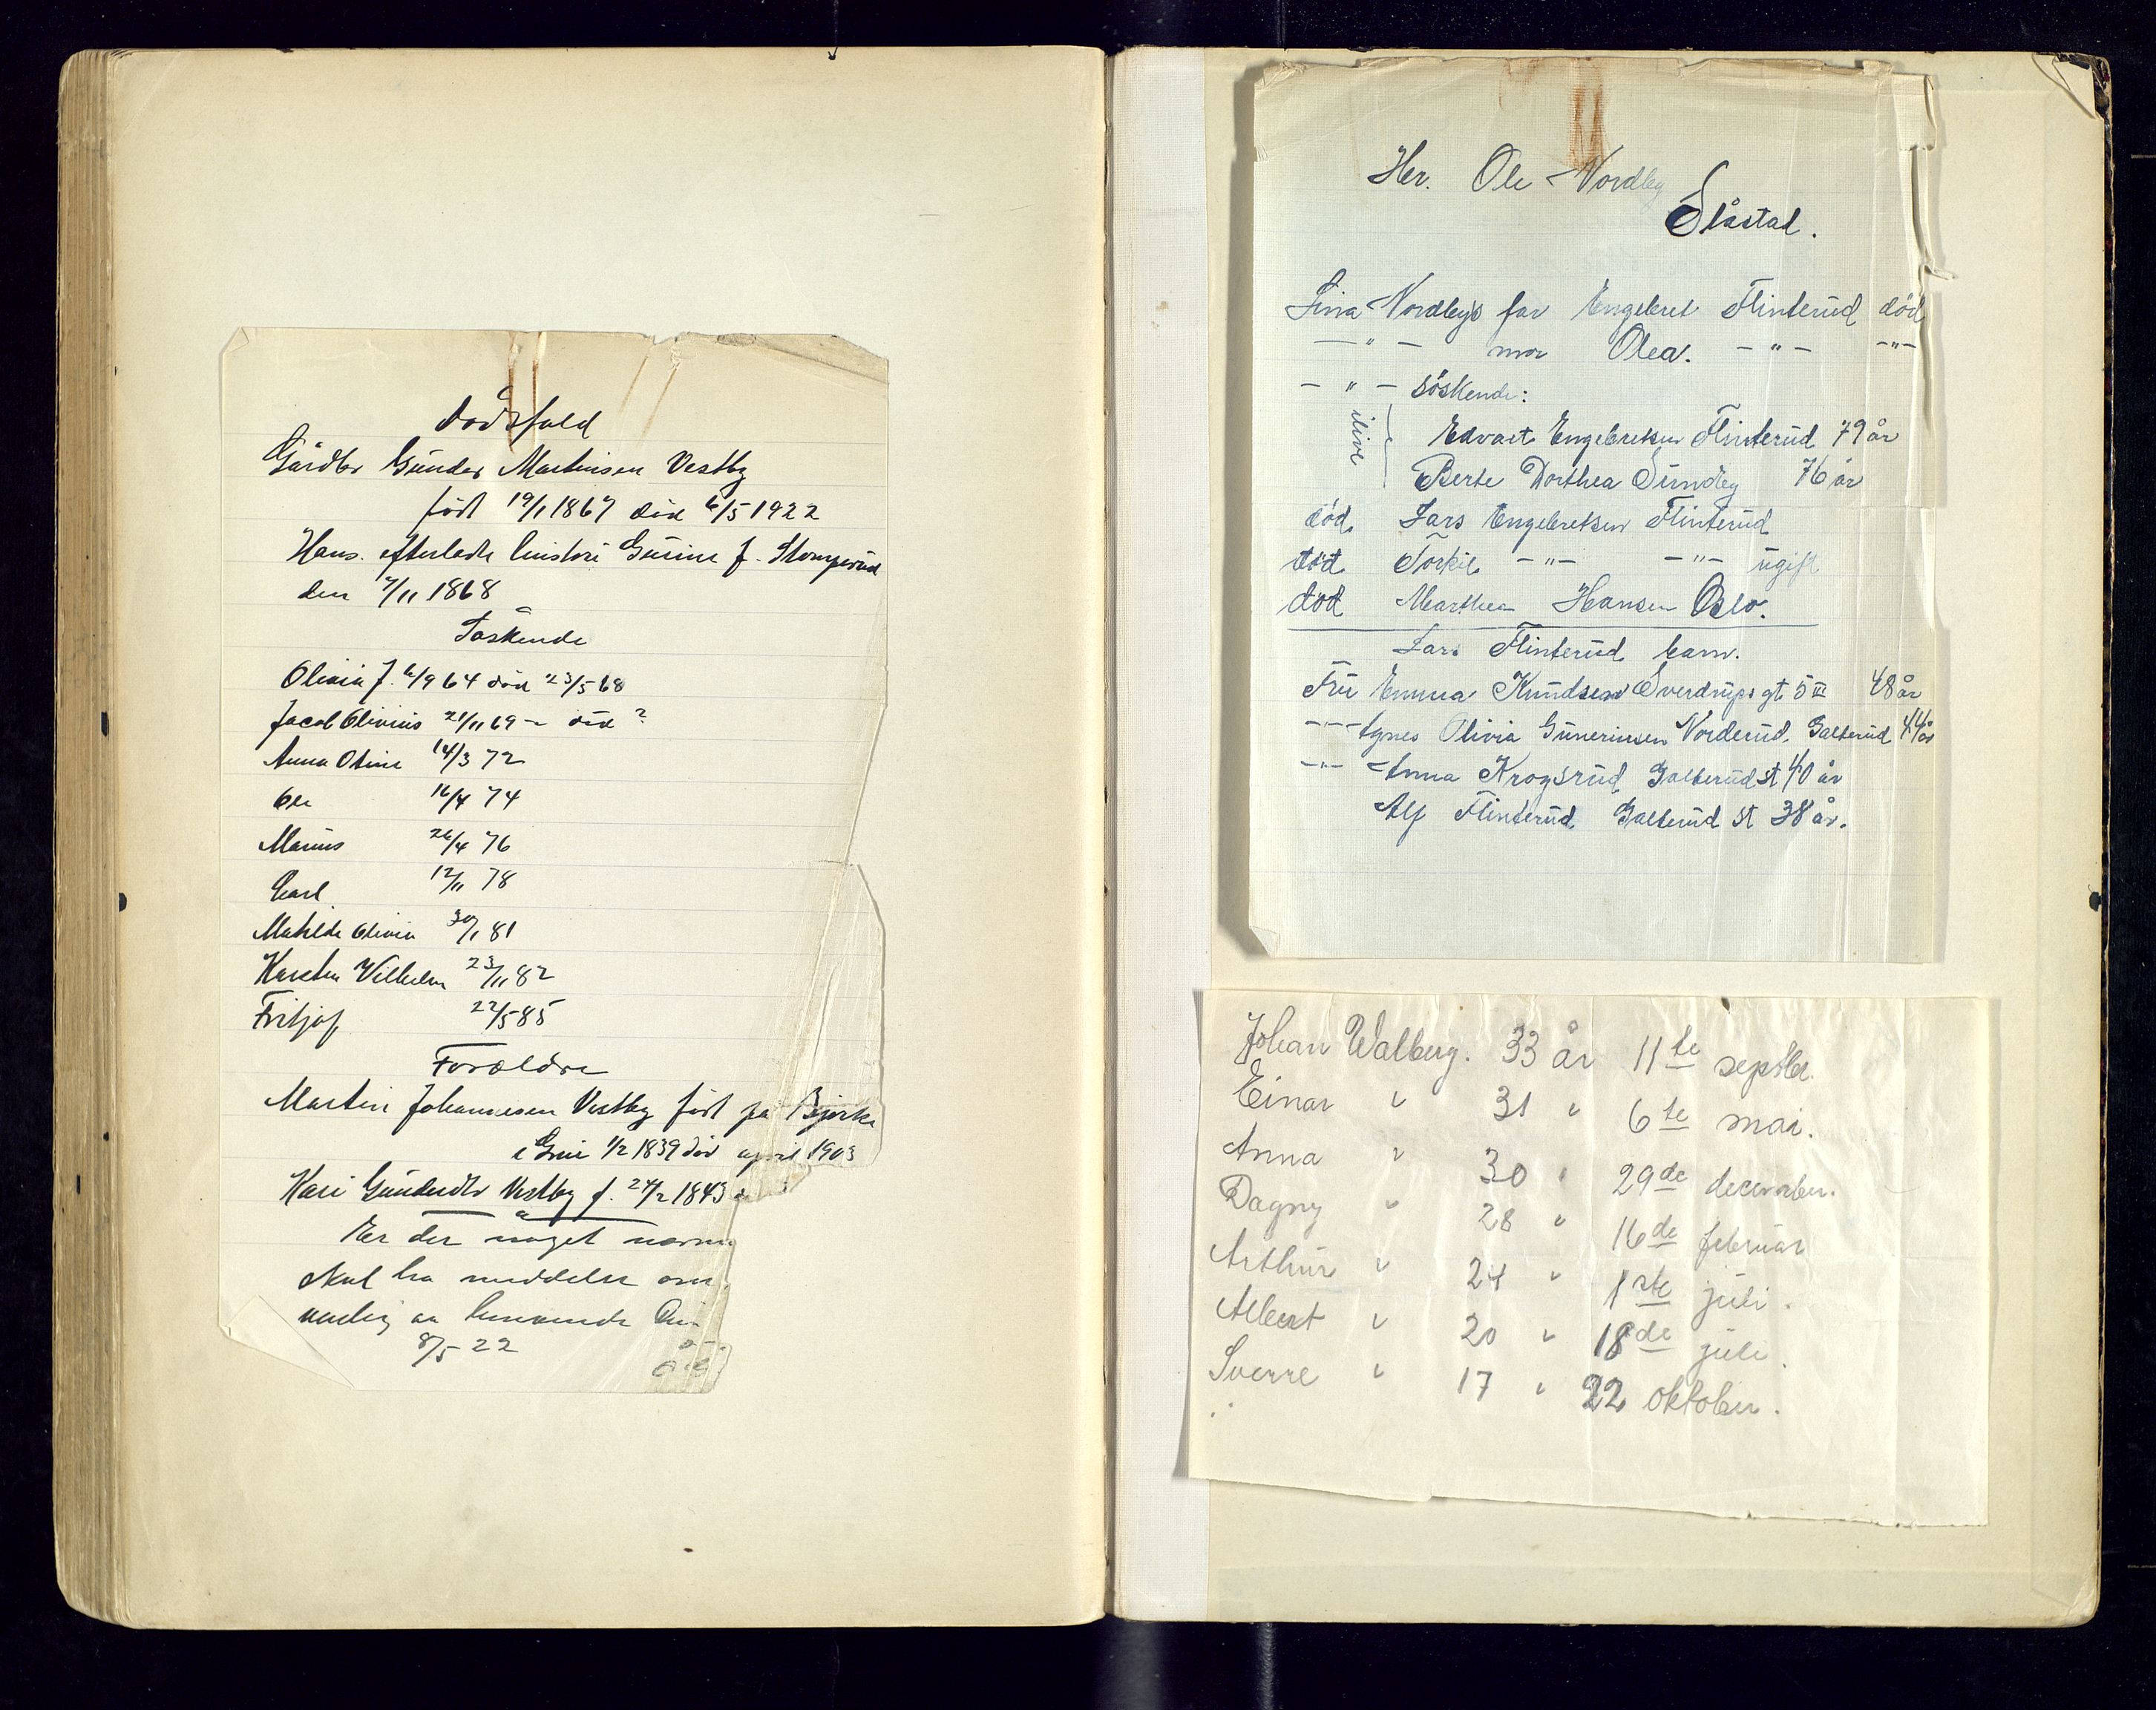 Dødsfald
Gårdbr Gunder Martinsen Vestby
født 19/1 1867 død 6/5 1922
Hans efterladte hustru Gurine f. Stomperud
den 7/11 1868
Søskende
Olivia f. 6/9 64 død 23/5 68
Jacob Olivius 21/11 69 – død ?
Anna Otine 14/3 72
Ole 16/4 74
Marius 26/4 76
Carl 12/11 78
Mathilde Olivia 30/1 81
Karsten Vilhelm 23/11 82
Fritjof 22/5 85
Forældre
Martin Johannesen Vestby født på Bjørke
i Grue 1/2 1839 død april 1903
Kari Gundersdtr Vestby f. 24/2 1843
Er der noget
skal ha meddelse om
venlig
8/5 22
Hr. Ole Nordby
Slåstad.
Lina Nordbys far Engebret Flinterud død
— " — mor Olea. — " — — " —
— " — søskende:
ilive
Edvart Engebretsen Flinterud 79 år
Berte Dorthea Sundby 76 år
død Lars Engebretsen Flinterud
död Torkil — " — — " — ugift
död Marthea Hansen Oslo.
Lars Flinterud barn.
Fru Emma Knudsen Sverdrups gt 5 III 48 år
— " — Agnes Olivia Guneriusen Norderud, Galterud 44 år
— " — Anna Krogsrud Galterud st 40 år
Alf Flinterud Galterud st 38 år.
Johan Walberg. 33 år 11te septbr.
Einar " 31 " 6te mai.
Anna " 30 " 29de december.
Dagny " 28 " 16de februar
Arthur " 24 " 1ste juli.
Albert " 20 " 18de juli.
Sverre " 17 " 22 oktober.